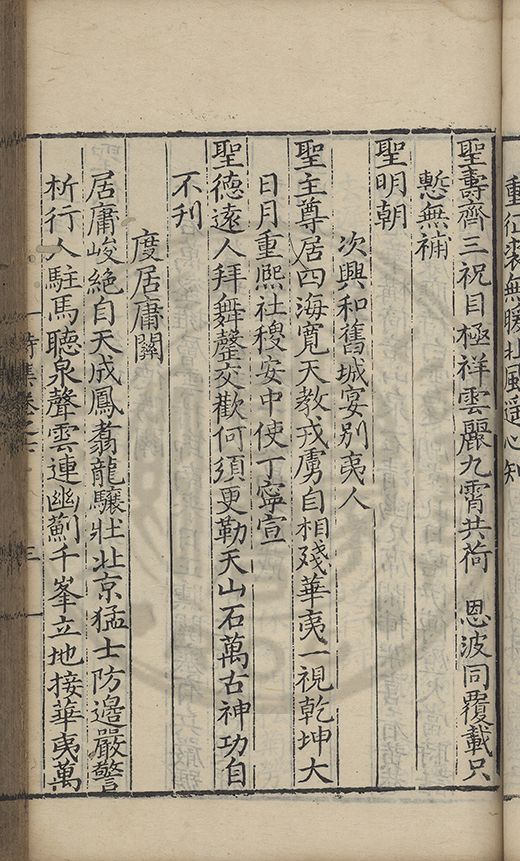 聖壽齊三祝目極祥雲麗九霄共荷 恩波同覆載只
慙無補
聖明朝
次興和舊城宴別夷人
聖主尊居四海寬天教戎虜自相殘華夷一視乾坤大
日月重熙社稷安中使丁寧宣
聖德遠人拜舞罄交歡何須更勒天山石萬古神功自
不刋
度居庸關
居庸峻絕自天成鳳翥龍驤壯北京猛士防邊嚴警
柝行人駐馬聽泉聲雲連幽薊千峯立地接華夷萬
詩集卷之
三